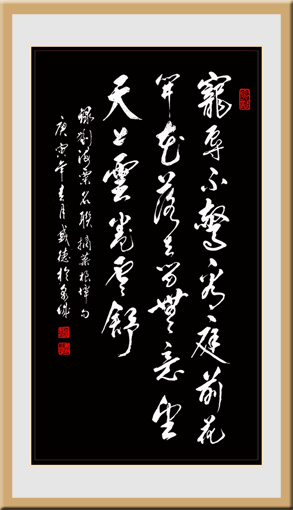 寵辱不驚看庭前花
開花落去留無意望
天上雲卷雲舒
錄劉海粟名聯摘菜根譚句
庚寅年春月